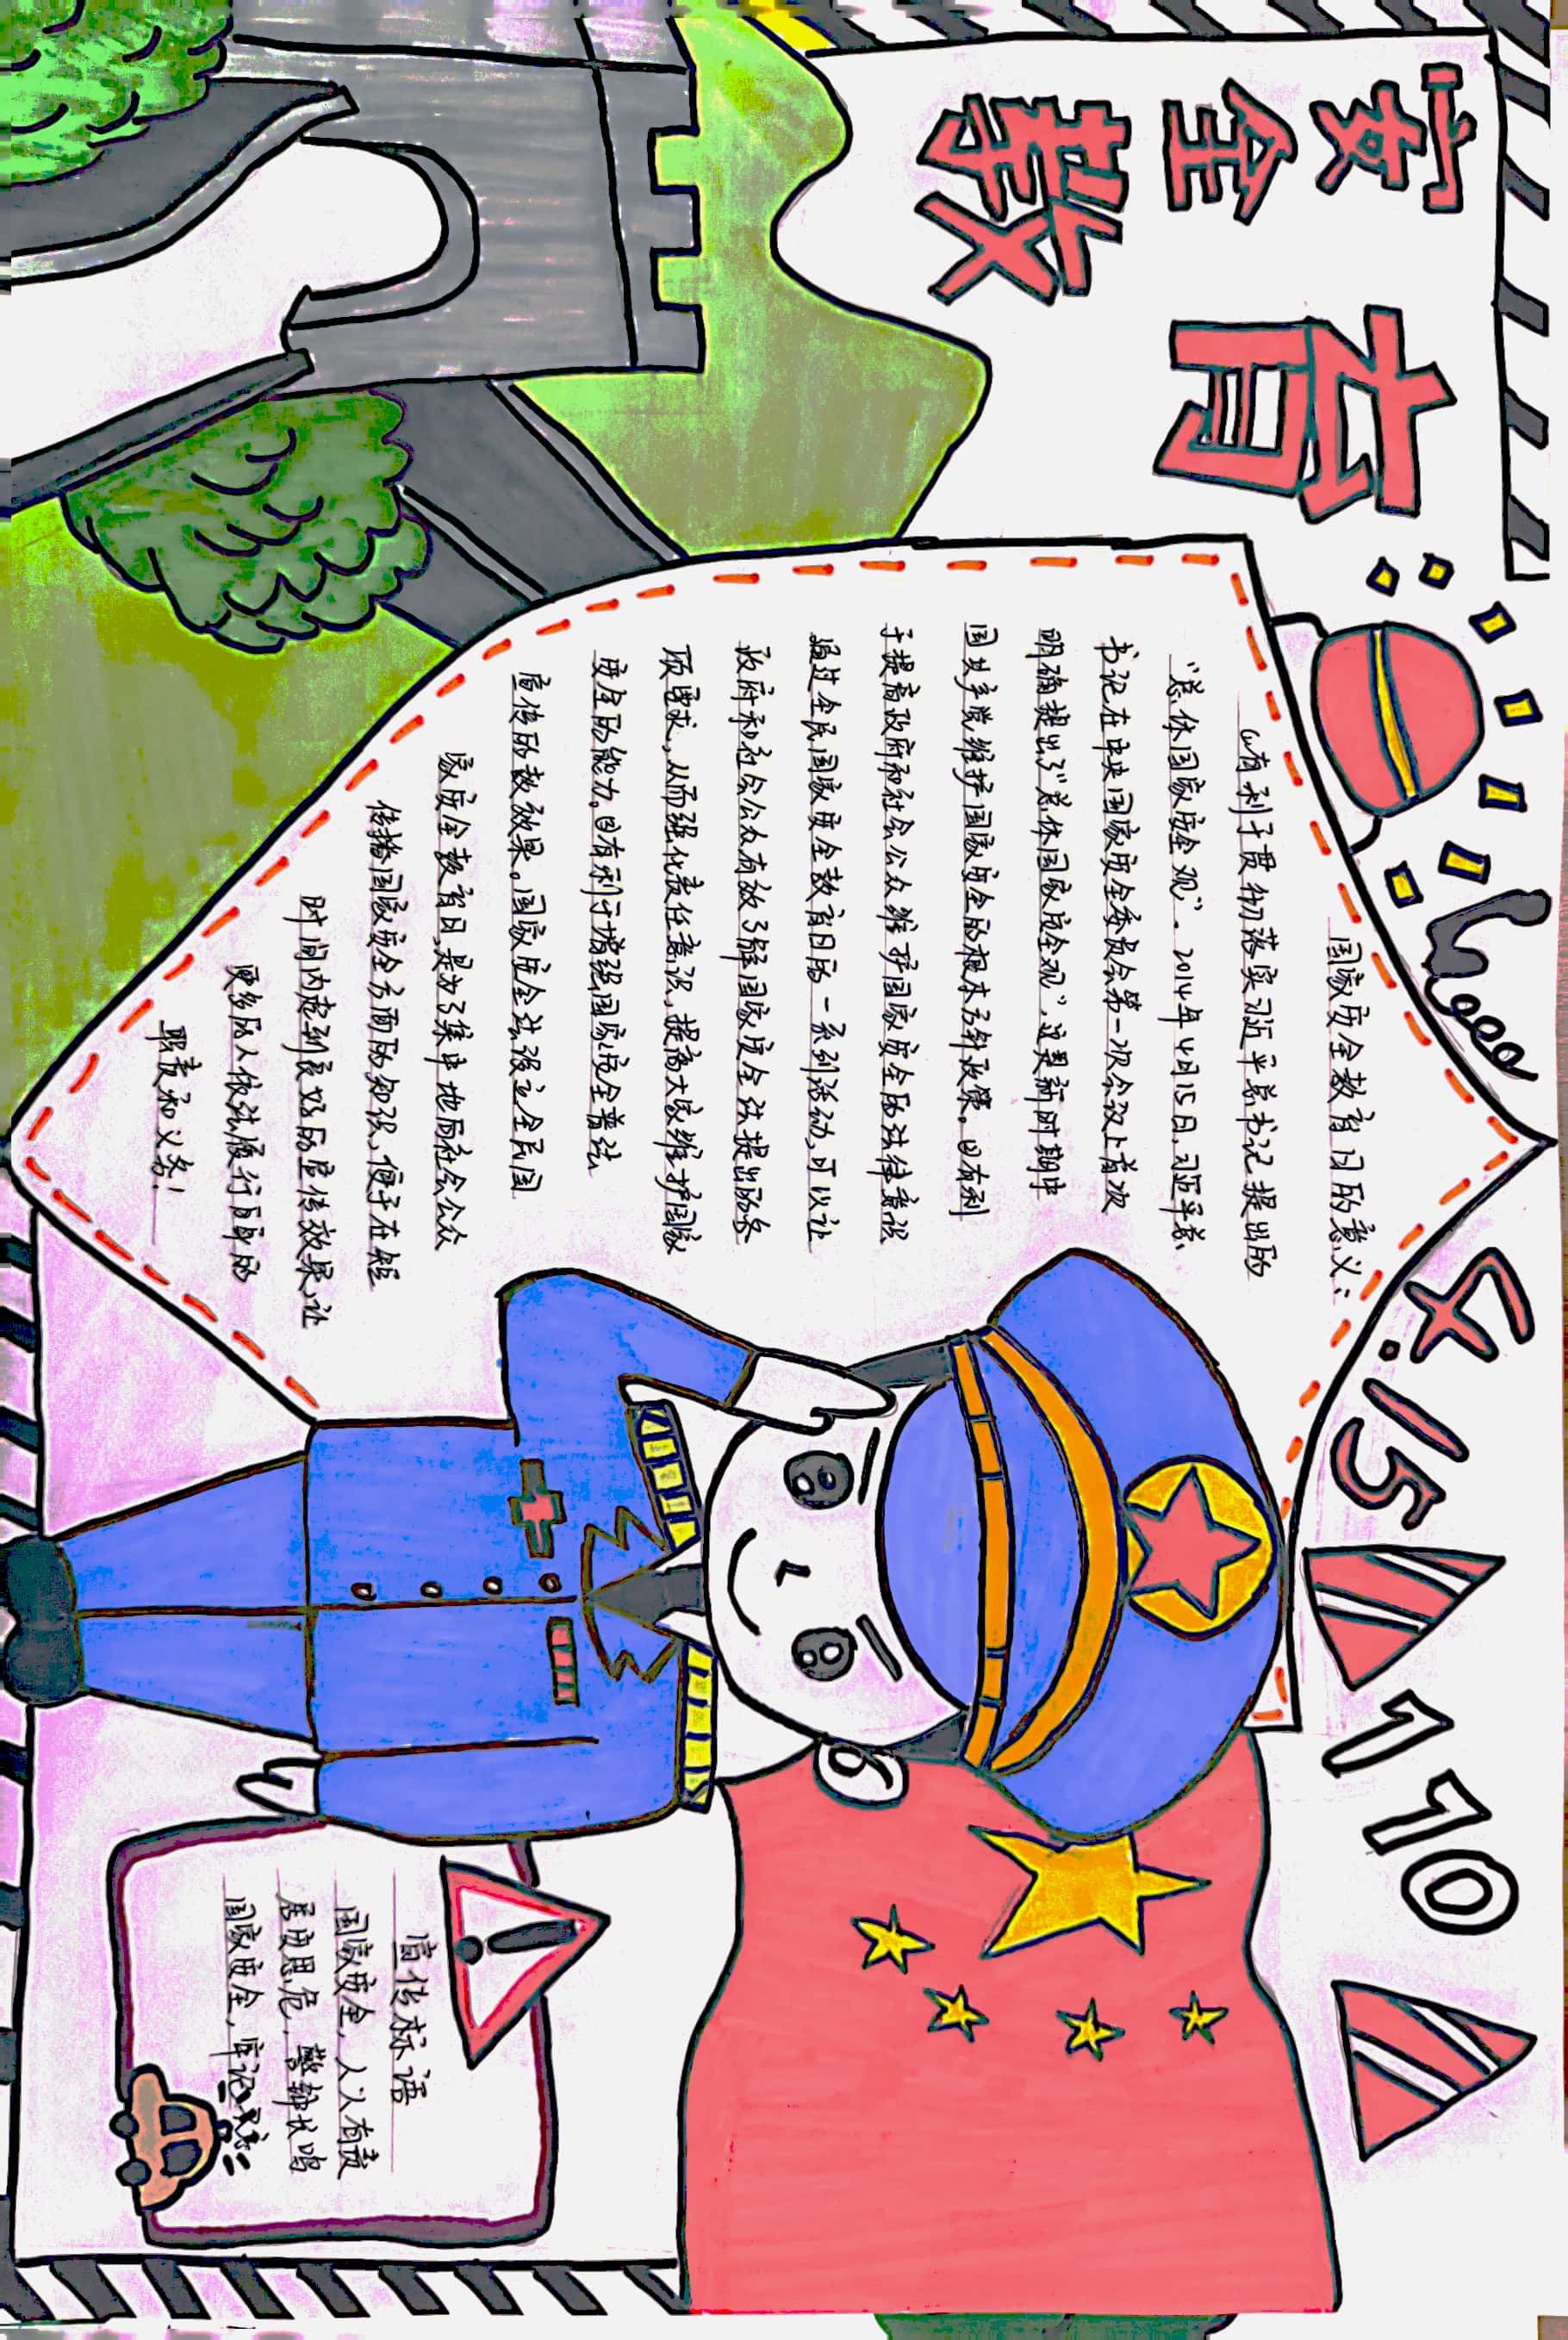 安全
教育
4.15
110
国家安全教育日的意义:
(1)有利于贯彻落实习近平总书记提出的
“总体国家安全观”。2014年4月15日,习近平总
书记在中央国家安全委员会第一次会议上首次
明确提出了“总体国家安全观”,这是新时期中
国共产党维护国家安全的根本方针政策。(2)有利
于提高政府和社会公众维护国家安全的法律意识
通过全民国家安全教育日的一系列活动,可以让
政府和社会公众有效了解国家安全法提出的各
项要求,从而强化责任意识,提高大家维护国家
安全的能力。(3)有利于增强国家安全普法
宣传的教效果。国家安全法设立全民国
家安全教育日,是为了集中地向社会公众
传播国家安全方面的知识,便于在短
时间内起到良好的宣传效果,让
更多的人依法履行自身的
职责和义务!
宣传标语
国家安全,人人有责
居安思危,警钟长鸣
国家安全,牢记我心